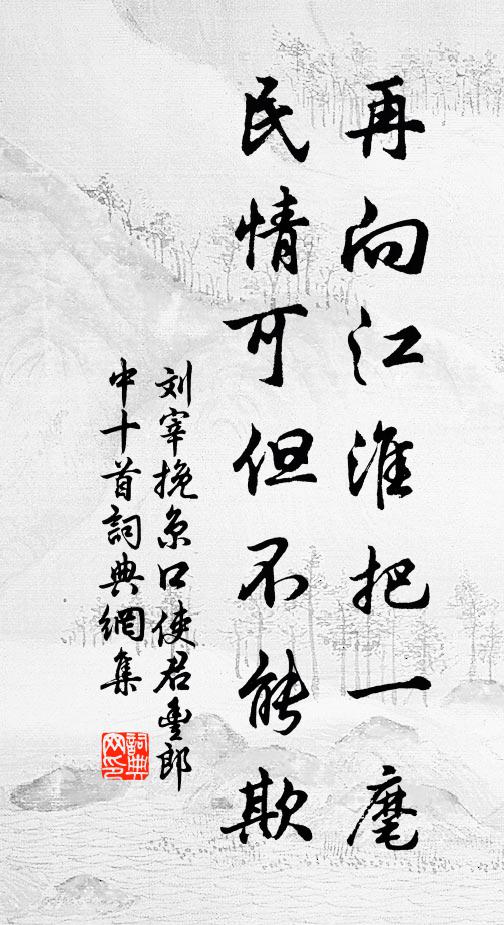 再向江淮把一麾
民情可但不能欺
刘宰挽京口使君豊郎
中十首詞典網集
詞典网印